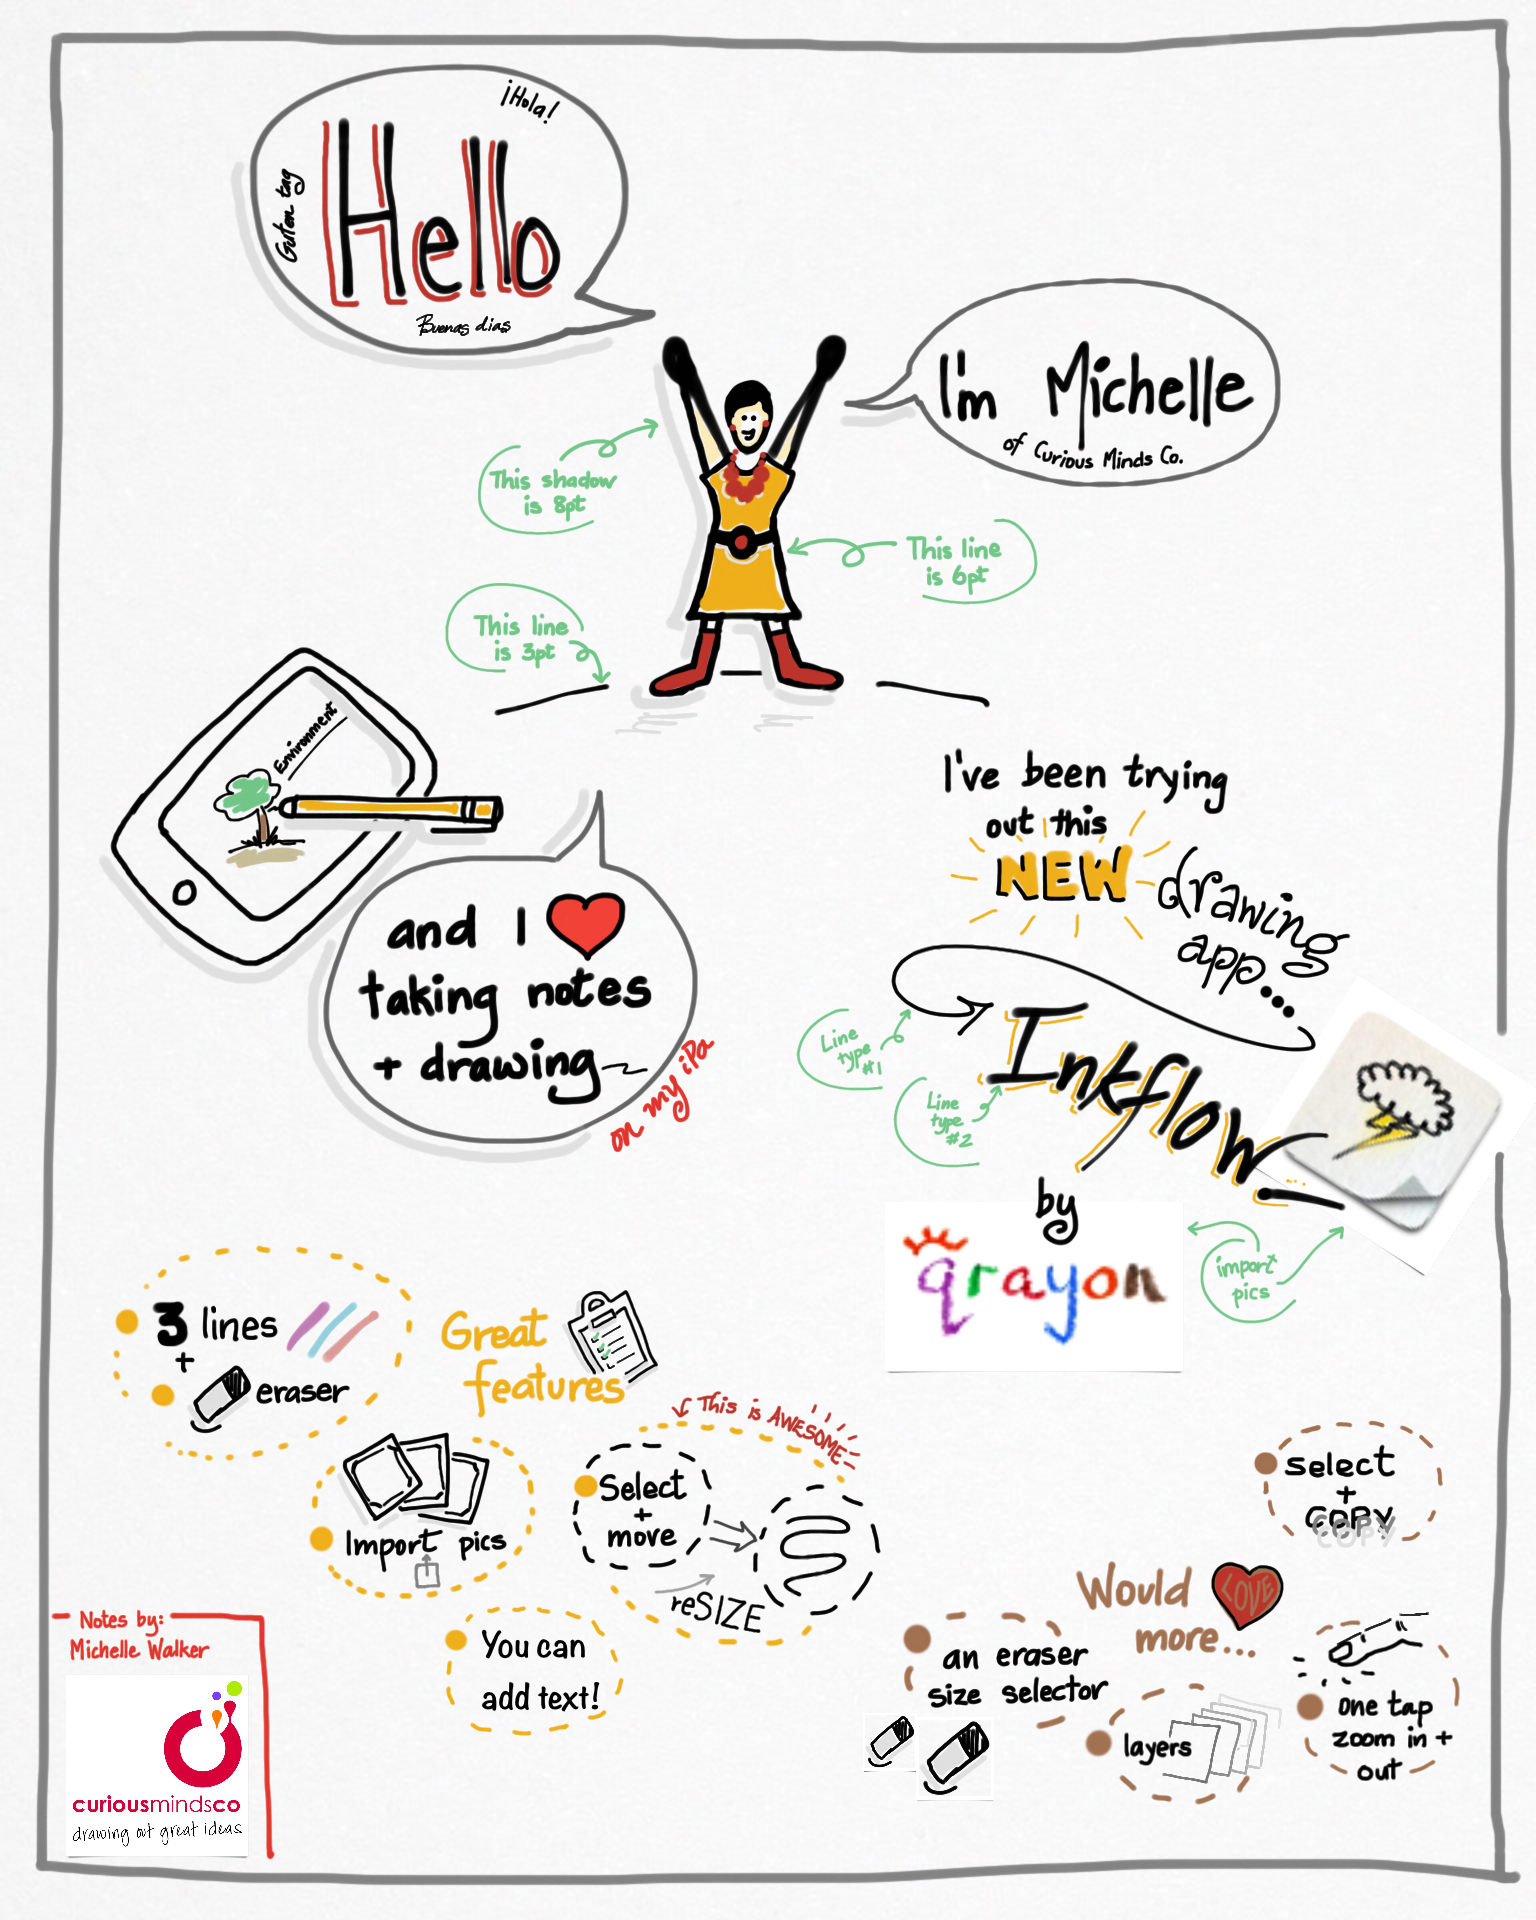 ¡Hola!
Guten tag
Hello
Buenas dias
I'm Michelle
of Curious Minds Co.
This shadow
is 8pt
This line
is 6pt
This line
is 3pt
Environment
and I
taking notes
+ drawing
on my iPa
I've been trying
out this
NEW
drawing
app...
Line
type
#1
Line
type
#2
Inkflow
by
qrayon
import
pics
3 lines
+
eraser
Great
features
Import pics
This is AWESOME
Select
+
move
reSIZE
You can
add text!
select
+
COPY
COPY
Would
LOVE
more...
an eraser
size selector
layers
One tap
zoom in +
out
Notes by:
Michelle Walker
curiousmindsco
drawing out great ideas